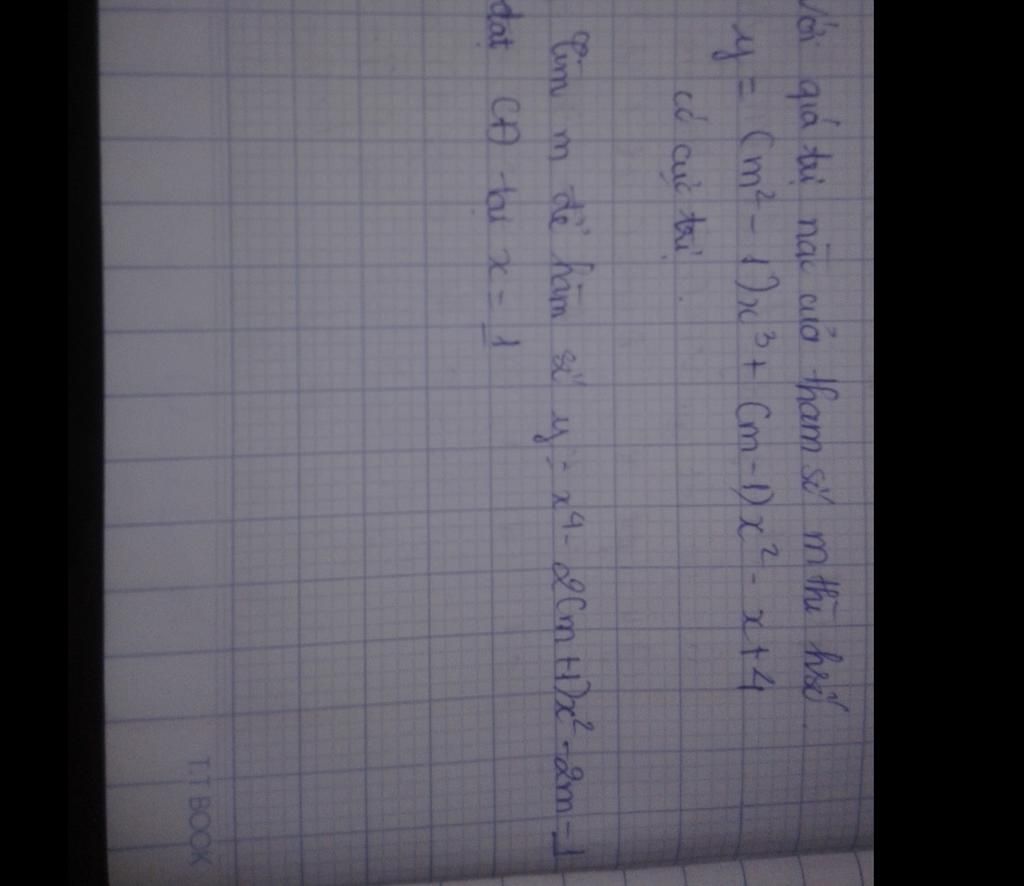 Với giá trị nào của tham số m thì hsố
y = (m² - 1)x³ + (m-1)x² - x + 4
có cực trị.
Tìm m để hàm số y = x⁴ - 2(m+1)x² - 2m - 1
đạt CĐ tại x = 1
T.T BOOK